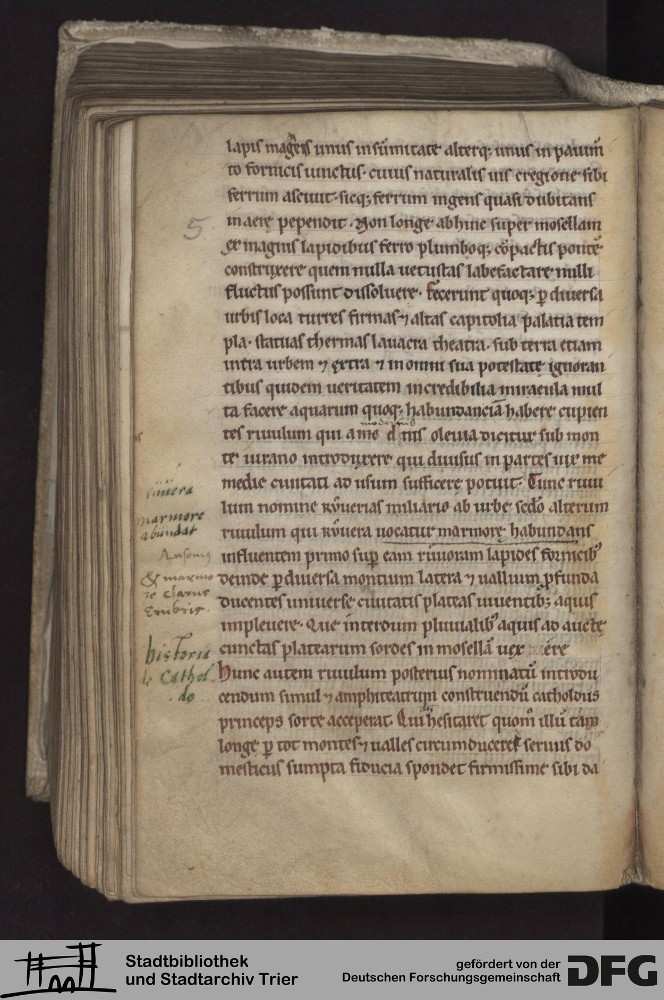 lapis magneis unus in sūmitate alterq; unus in pauim̄
to fornicis iunctus. cuius naturalis uis eregione sibi
ferrum asciuit. sicq; ferrum ingens quasi dubitans
in aerę pependit. Non longe abhinc super mosellam
ex magnis lapidibus ferro plumboq; cōpactis pontē
construxere quem nulla uetustas labefactare nulli
fluctus possunt dissoluere. fecerunt quoq; ꝑ diuersa
urbis loca turres firmas ⁊ altas capitolia palatia tem
pla. statuas thermas lauacra theatra. sub terra etiam
intra urbem ⁊ extra ⁊ in omni sua potestate ignoran
tibus quidem ueritatem incredibilia miracula mul
ta facere aquarum quoq; habundanciā habere cupien
tes riuulum qui a modernis oleuia dicitur sub mon
te iurano introduxere qui diuisus in partes uix me
medie ciuitati ad usum sufficere potuit. Tunc riuu
lum nomine rǒuerias miliario ab urbe scdo alterum
riuulum qui rǒuera uocatur marmorę habundans
influentem primo sup eam riuoram lapides fornicib;
deinde ꝑ diuersa montium latera ⁊ uallium ꝓfunda
ducentes uniuerse ciuitatis plateas uiuentib; aquis
impleuere. Que interdum pluuialib; aquis ad aucte
cunctas platearum sordes in mosellā uexere
Hunc autem riuulum posterius nominatū introdu
cendum simul ⁊ amphiteatrum construendū catholdus
princeps sorte acceperat. Qui hesitaret quom̄ illū tam
longe ꝑ tot montes ⁊ ualles circumduceret seruus do
mesticus sumpta fiducia spondet firmissime sibi da
5
marmore
abundat
Ausonius
& marmo
re clarus
Erubris.
historia
de Cathol
do
Stadtbibliothek
und Stadtarchiv Trier
gefördert von der
Deutschen Forschungsgemeinschaft
DFG